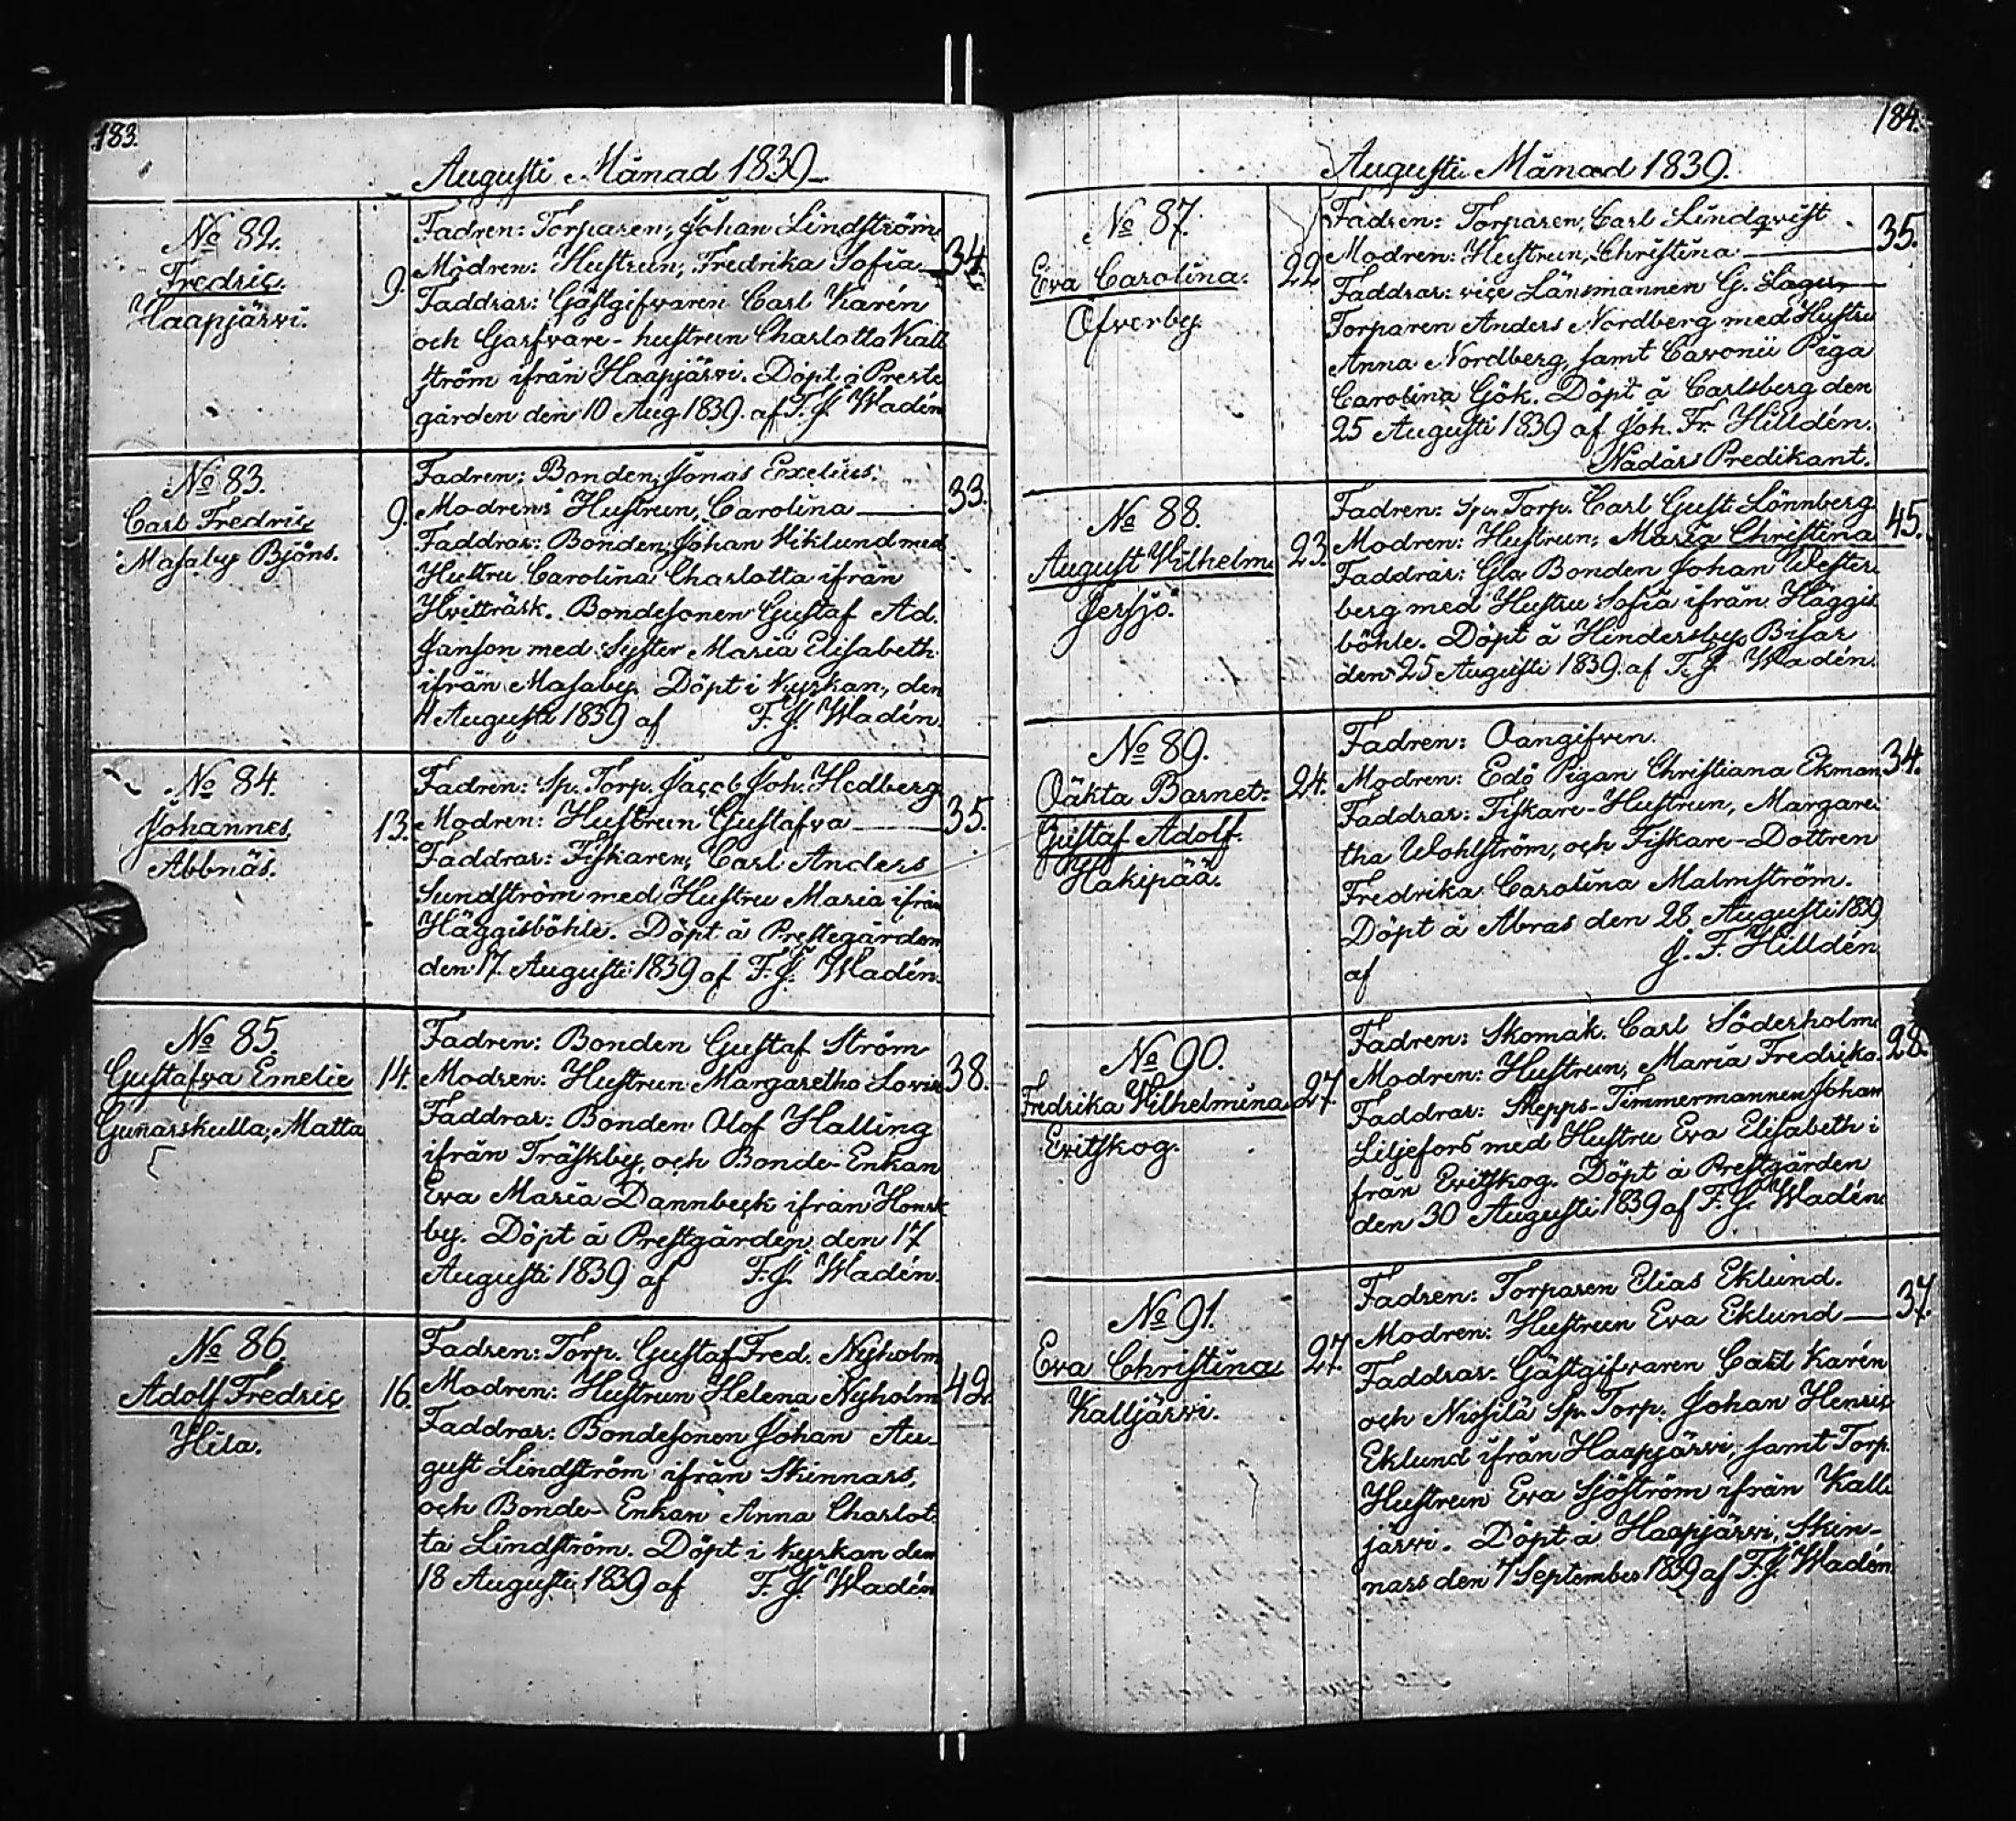 183.
Augusti Månad 1839
No 82.
Fredric.
Haapjärvi.
9.
Fadren: Torparen, Johan Lindström
Modren: Hustrun, Fredrika Sofia
34.
Faddrar: Gästgifvaren Carl Karén
och Garfvare-hustrun Charlotta Käll
ström ifrån Haapjärvi. Döpt å Preste
gården den 10 Aug 1839. af F. J. Wadén
No 83.
Carl Fredric
Masaby Bjöns.
9.
Fadren: Bonden, Jonas Exelius.
Modren: Hustrun, Carolina
33.
Faddrar: Bonden, Johan Wiklund med
Hustru Carolina Charlotta ifrån
Hvitträsk. Bondesonen Gustaf Ad.
Janson med Syster Maria Elisabeth
ifrån Masaby. Döpt i Kyrkan, den
11 Augusti 1839 af F. J. Wadén.
No 84.
Johannes
Abbnäs.
13.
Fadren: Sp. Torp. Jacob Joh. Hedberg
Modren: Hustrun Gustafva
35.
Faddrar: Fiskaren, Carl Anders
Sundström med Hustru Maria ifrån
Häggisböhle. Döpt å Prestegården
den 17 Augusti 1839 af F. J. Wadén.
No 85.
Gustafva Emelie
Gunarskulla, Matta
14.
Fadren: Bonden Gustaf Ström
Modren: Hustrun Margaretha Lovisa
38.
Faddrar: Bonden Olof Halling
ifrån Träskby, och Bonde-Enkan
Eva Maria Dannbeck ifrån Honsk
by. Döpt å Prestgården den 17
Augusti 1839 af F. J. Wadén.
No 86.
Adolf Fredric
Hila.
16.
Fadren: Torp. Gustaf Fred. Nyholm
Modren: Hustrun Helena Nyholm
42.
Faddrar: Bondesonen Johan Au-
gust Lindström ifrån Skinnars,
och Bonde-Enkan Anna Charlot
ta Lindström. Döpt i Kyrkan den
18 Augusti 1839 af F. J. Wadén
184.
Augusti Månad 1839.
No 87.
Eva Carolina.
Öfverby.
22
Fadren: Torparen, Carl Lindqvist
Modren: Hustrun, Christina
35.
Faddrar: vice Länsmannen G. Lager
Torparen Anders Nordberg med Hustru
Anna Nordberg, samt Piga
Carolina Gök. Döpt å Carlsberg den
25 Augusti 1839 af Joh. Fr. Hilldén.
Nådårs Predikant.
No 88.
August Wilhelm
Jersjö.
23.
Fadren: Sp. Torp. Carl Gust. Lönnberg
Modren: Hustrun, Maria Christina
45.
Faddrar: Gla Bonden Johan Wester
berg med Hustru Sofia ifrån Häggis
böhle. Döpt å Hindersby Bisar
den 25 Augusti 1839 af F. J. Wadén.
No 89.
Oäkta Barnet:
Gustaf Adolf.
Hakipää.
24.
Fadren: Oangifven.
Modren: Edö Pigan Christiana Ekman
34.
Faddrar: Fiskare-Hustrun, Margare
tha Wohlström, och Fiskare-Dottren
Fredrika Carolina Malmström.
Döpt å Abras den 28 Augusti 1839
af J. F. Hilldén
No 90.
Fredrika Wilhelmina
Evitskog.
27.
Fadren: Skomak. Carl Söderholm
Modren: Hustrun, Maria Fredrika.
28.
Faddrar: Skepps-Timmermannen Johan
Liljefors med Hustru Eva Elisabeth i
från Evitskog. Döpt å Prestgården
den 30 Augusti 1839 af F. J. Wadén.
No 91.
Eva Christina
Kalljärvi.
27.
Fadren: Torparen Elias Eklund.
Modren: Hustrun Eva Eklund
37.
Faddrar: Gästgifvaren Carl Karén
och Niosilä Sp. Torp. Johan Henric
Eklund ifrån Haapjärvi, samt Torp.
Hustrun Eva Sjöström ifrån Kall
järvi. Döpt å Haapjärvi, Skin-
nars den 7 September 1839 af F. J. Wadén